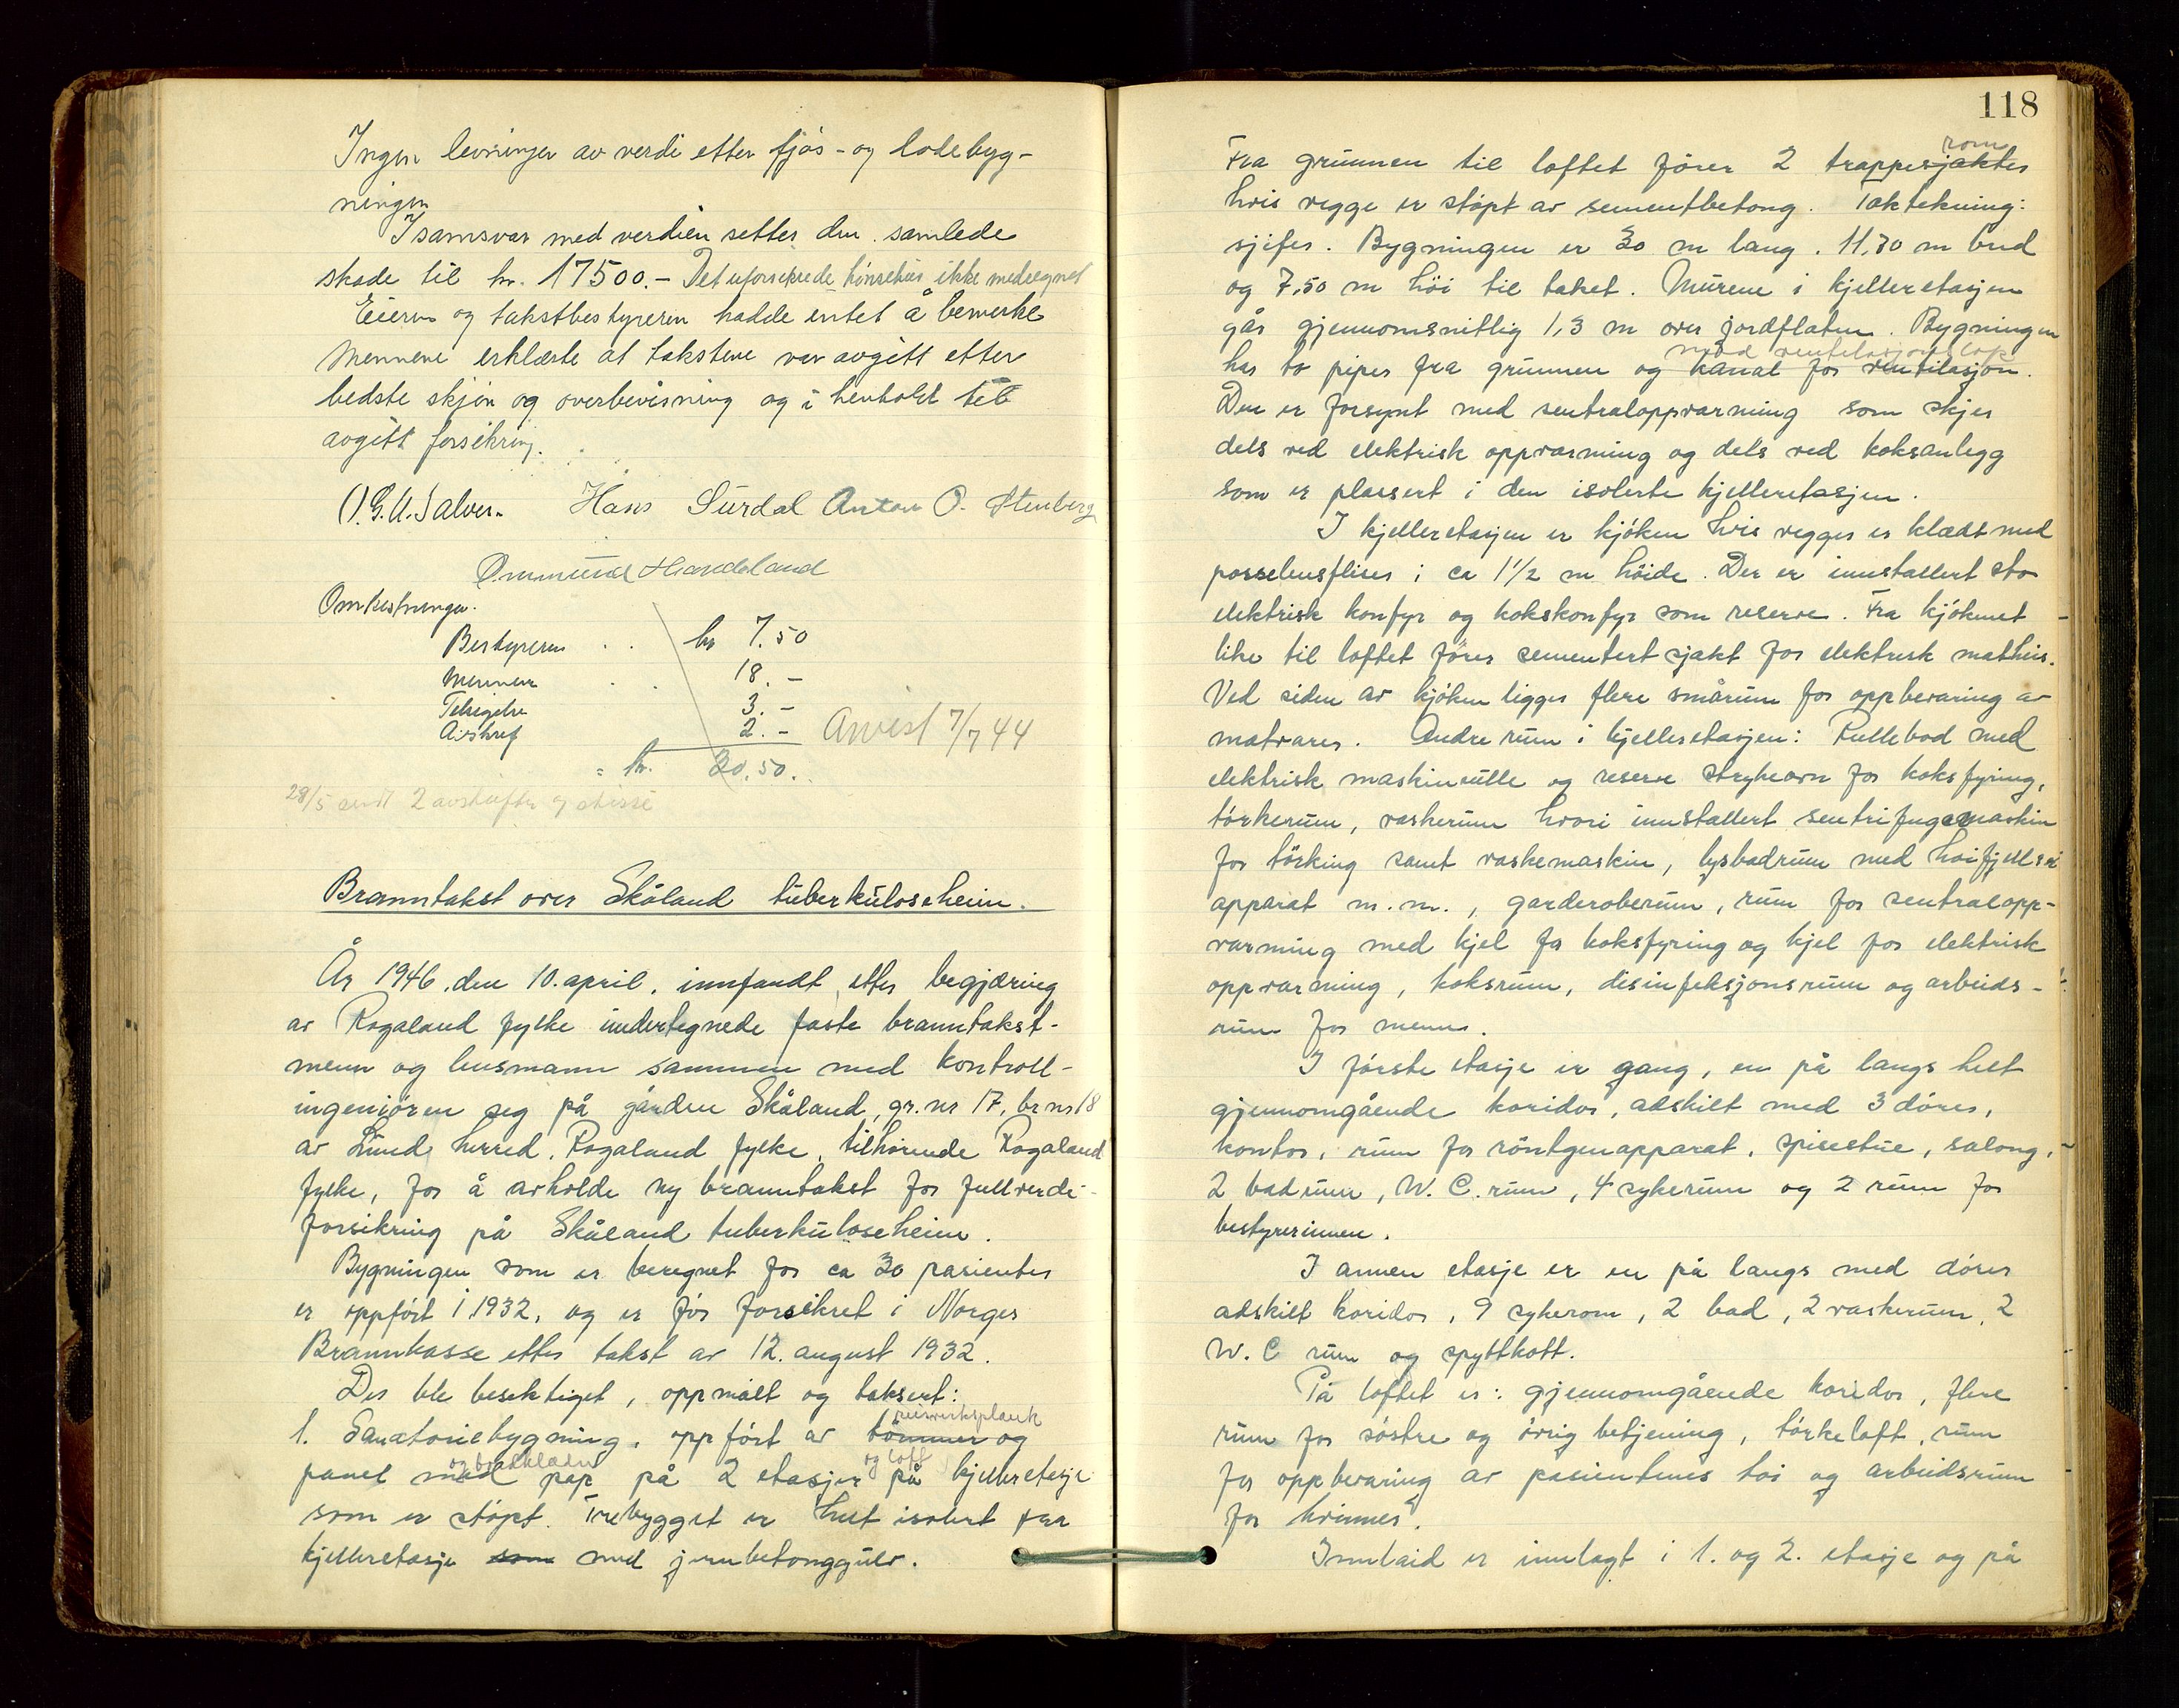 Ingen levninger av verdi efter fjøs- og lodebyg-
ningen
I samsvar med verdien settes den samlede
skade til kr. 17500.- Det uforsikrede hønsehus ikke medregnet
Eieren og takstbestyreren hadde intet å bemerke
Mennene erklærte at takstene var avgitt etter
bedste skjøn og overbevisning og i henhold til
avgitt forsikring.
Hans Surdal Anton O. Stenberg
Ommund Handeland
Omkostninger.
Bestyreren . . kr 7.50
Mennene . . 18.-
3.-
Avskref 2.- Anvist 7/7 44
= kr. 30.50.
28/5 sendt 2 avskrifter og skisse
Branntakst over Skåland tuberkuloseheim.
År 1946, den 10. april, innfandt etter begjæring
av Rogaland fylke undertegnede faste branntakst-
menn og lensmann sammen med kontroll-
ingeniøren seg på gården Skåland, gr. nr 17, br nr 18
av Lund herred, Rogaland fylke, tilhørende Rogaland
fylke, for å avholde ny branntakst for fullverdi-
forsikring på Skåland tuberkuloseheim.
Bygningen som er beregnet for ca 30 pasienter
er oppført i 1932, og er før forsikret i Norges
Brannkasse etter takst av 12. august 1932.
Der ble besiktiget, oppmålt og taksert:
reisverksplank
1. Sanatoriebygning, oppført av tömmer og
og bordklædn og loft
panel med pap på 2 etasjer på kjelleretasje
som er støpt. Trebygget er helt isolert fra
kjelleretasje som med jernbetonggulv.
118
rom
Fra grunnen til loftet fører 2 trappesjakter
hvis vegge er støpt av sementbetong. Taktekning:
sjifer. Bygningen er 30 m lang, 11,30 m bred
og 7,50 m höi til taket. Murene i kjelleretasjen
går gjennomsnitlig 1,3 m over jordflaten. Bygningen
med ventilasjonsløp
har to piper fra grunnen og kanal for ventilasjon.
Den er forsynt med sentraloppvarming som skjer
dels ved elektrisk oppvarming og dels ved koksanlegg
som er plassert i den isolerte kjelleretasjen.
I kjelleretasjen er kjøken hvis vegger er klædt med
posselensfliser i ca 1 1/2 m höide. Der er innstallert stor
elektrisk komfyr og kokskomfyr som reserve. Fra kjøkenet
like til loftet fører sementert sjakt for elektrisk matheis.
Ved siden av kjøken ligger flere smårum for oppbevaring av
matvarer. Andre rum i kjelleretasjen: Rullebod med
elektrisk maskinrulle og reserve strykeovn for koksfyring,
tørkerum, vaskerum hvori innstallert sentrifugemaskin
for tørking samt vaskemaskin, lysbadrum med höifjellsol
apparat m.m., garderoberum, rum for sentralopp-
varming med kjel for koksfyring og kjel for elektrisk
oppvarming, koksrum, disinfeksjonsrum og arbeids-
rum for menn.
I første etasje er gang, en på langs helt
gjennomgående koridor, adskilt med 3 dører,
kontor, rum for röntgenapparat, spisestue, salong,
2 badrum, W. C. rum, 4 sykerum og 2 rum for
bestyrerinnen.
I annen etasje er en på langs med dører
adskilt koridor, 9 sykerom, 2 bad, 2 vaskerum, 2
W. C rum og spyttkott.
På loftet er: gjennomgående koridor, flere
rum for søstre og øvrig betjening, tørkeloft, rum
for oppbevaring av pasientenes töi og arbeidsrum
for kvinner.
Innlaid er innlagt i 1. og 2. etasje og på